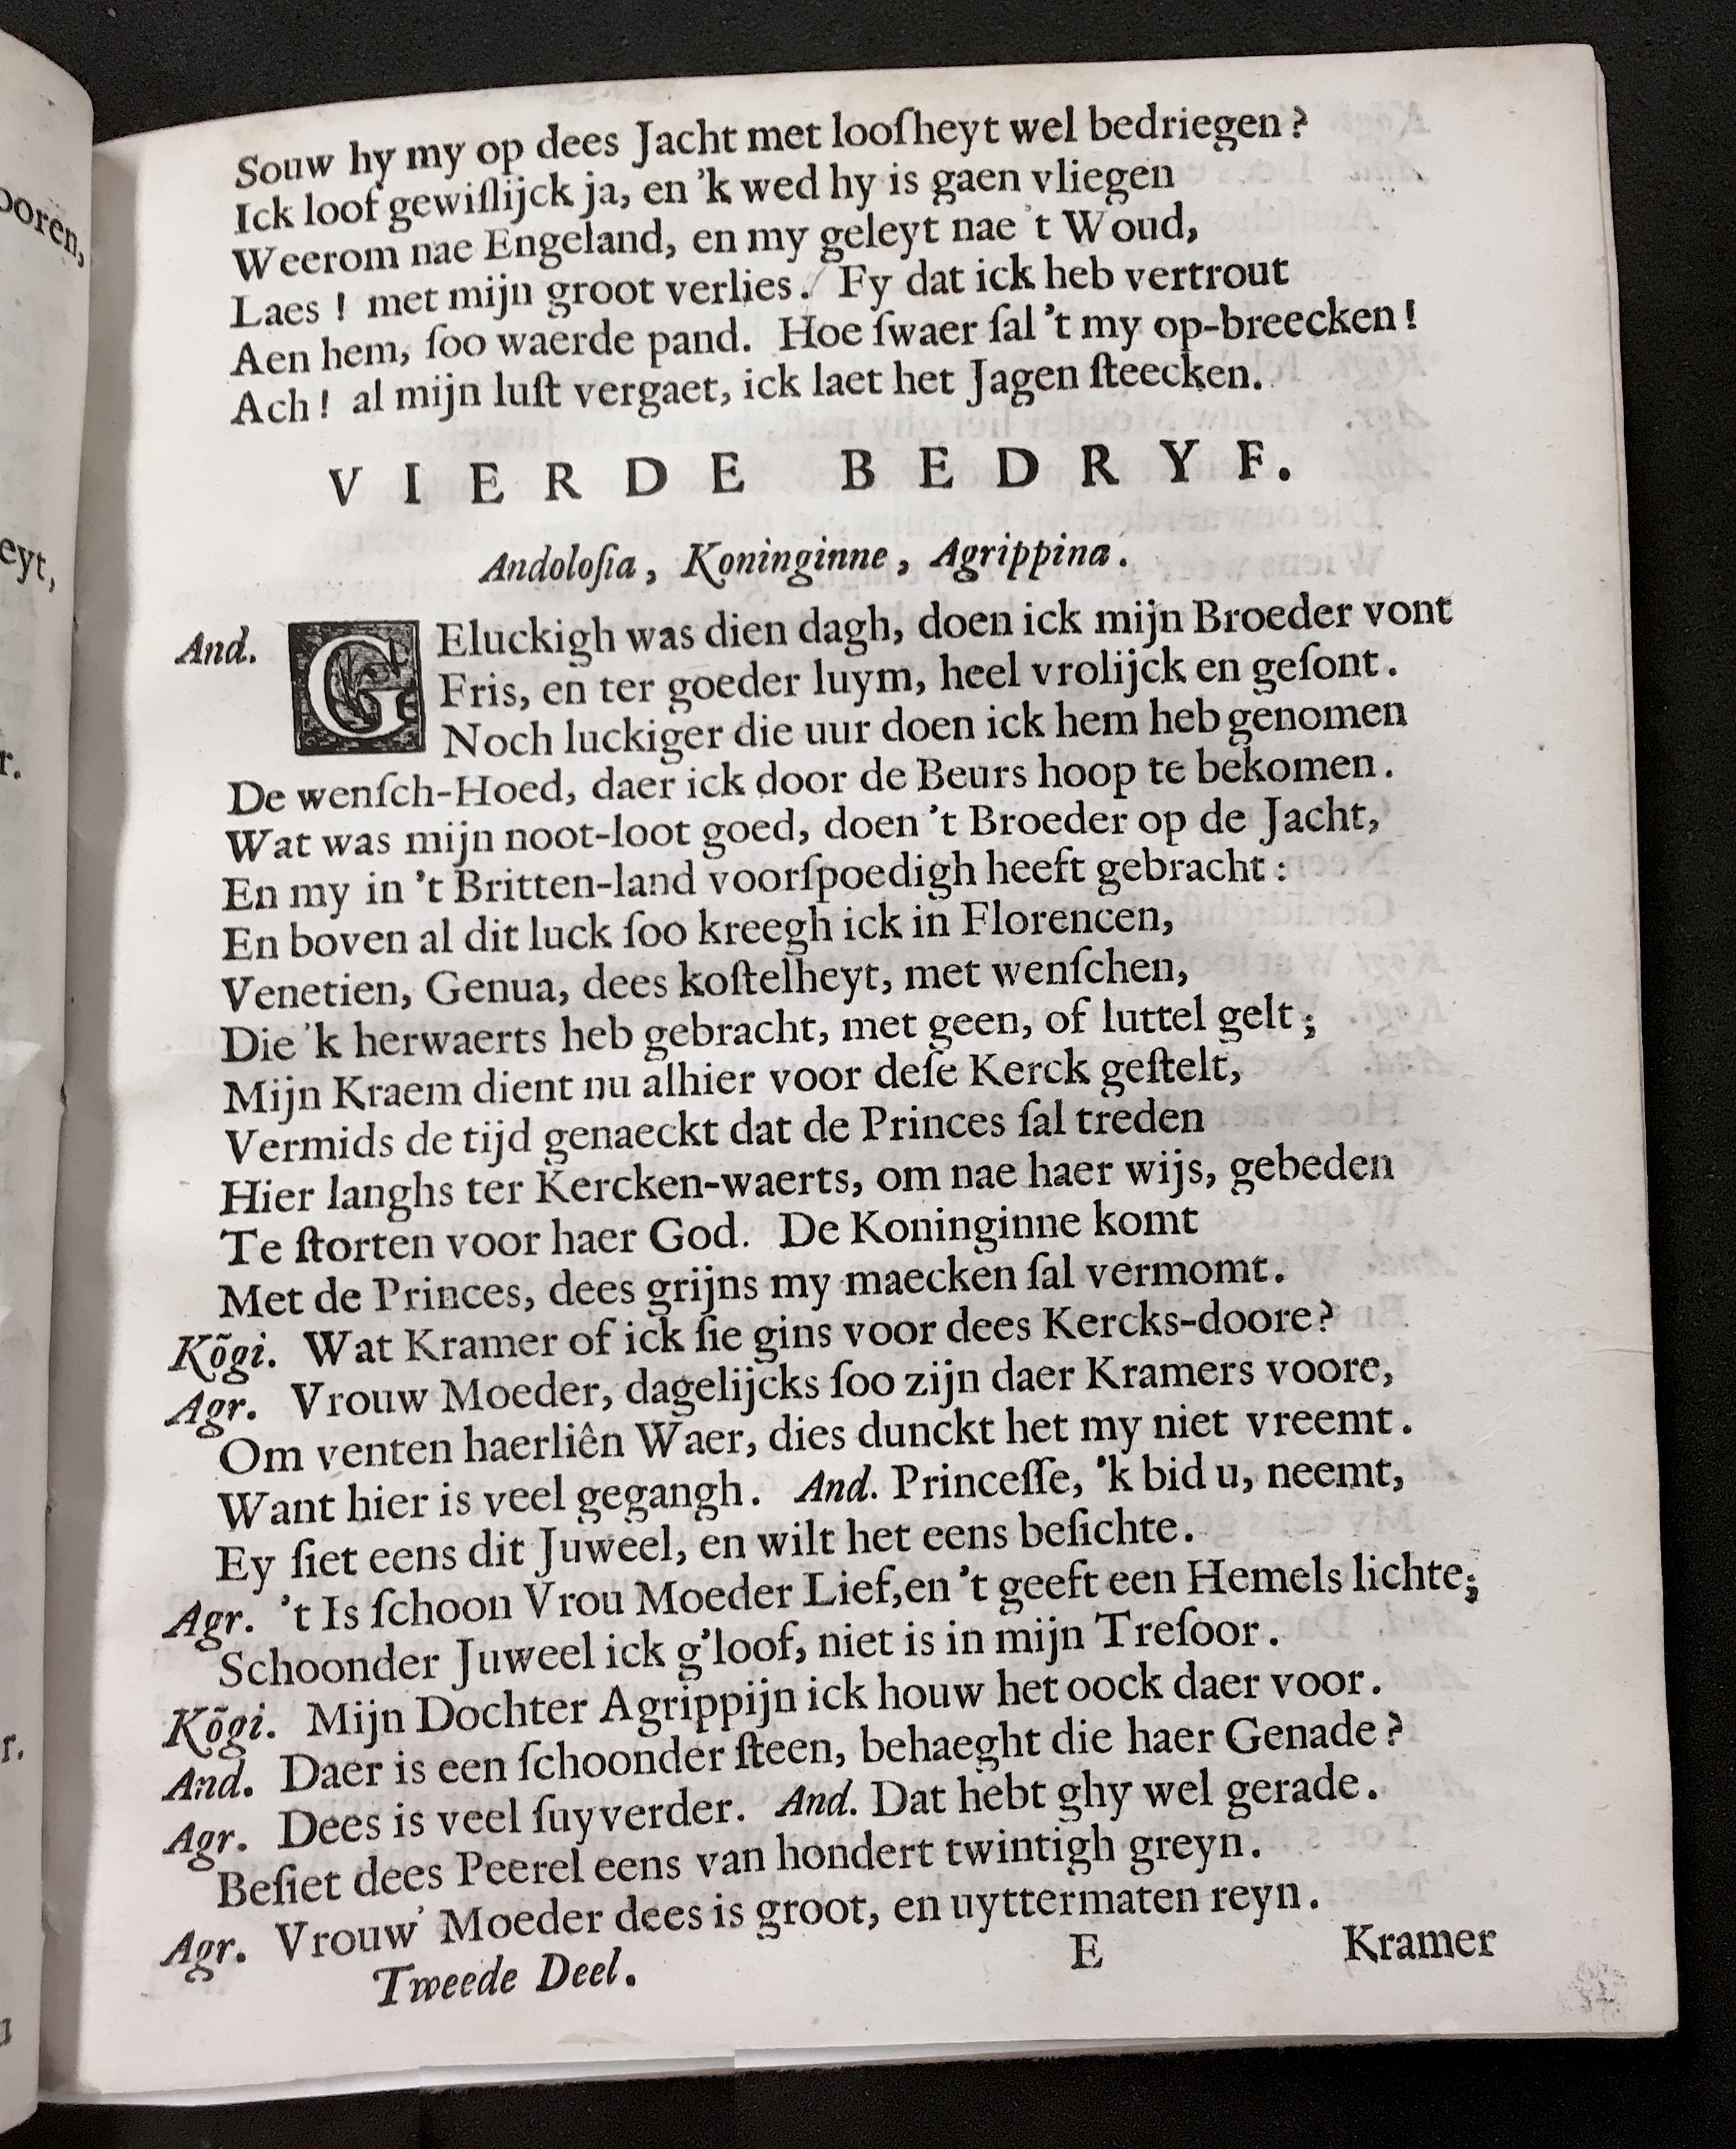 Souw hy my op dees Jacht met looſheyt wel bedriegen?
Ick loof gewiſlijck ja, en 'k wed hy is gaen vliegen
Weerom nae Engeland, en my geleyt nae 't Woud,
Laes! met mijn groot verlies. Fy dat ick heb vertrout
Aen hem, ſoo waerde pand. Hoe ſwaer ſal 't my op-breecken!
Ach! al mijn luſt vergaet, ick laet het Jagen ſteecken.
VIERDE BEDRYF.
Andoloſia, Koninginne, Agrippina.
And. GEluckigh was dien dagh, doen ick mijn Broeder vont
Fris, en ter goeder luym, heel vrolijck en geſont.
Noch luckiger die uur doen ick hem heb genomen
De wenſch-Hoed, daer ick door de Beurs hoop te bekomen.
Wat was mijn noot-loot goed, doen 't Broeder op de Jacht,
En my in 't Britten-land voorſpoedigh heeft gebracht:
En boven al dit luck ſoo kreegh ick in Florencen,
Venetien, Genua, dees koſtelheyt, met wenſchen,
Die 'k herwaerts heb gebracht, met geen, of luttel gelt;
Mijn Kraem dient nu alhier voor deſe Kerck geſtelt,
Vermids de tijd genaeckt dat de Princes ſal treden
Hier langhs ter Kercken-waerts, om nae haer wijs, gebeden
Te ſtorten voor haer God. De Koninginne komt
Met de Princes, dees grijns my maecken ſal vermomt.
Kõgi. Wat Kramer of ick ſie gins voor dees Kercks-doore?
Agr. Vrouw Moeder, dagelijcks ſoo zijn daer Kramers voore,
Om venten haerliên Waer, dies dunckt het my niet vreemt.
Want hier is veel gegangh. And. Princeſſe, 'k bid u, neemt,
Ey ſiet eens dit Juweel, en wilt het eens beſichte.
Agr. 't Is ſchoon Vrou Moeder Lief,en 't geeft een Hemels lichte;
Schoonder Juweel ick g'loof, niet is in mijn Treſoor.
Kõgi. Mijn Dochter Agrippijn ick houw het oock daer voor.
And. Daer is een ſchoonder ſteen, behaeght die haer Genade?
Agr. Dees is veel ſuyverder. And. Dat hebt ghy wel gerade.
Beſiet dees Peerel eens van hondert twintigh greyn.
Agr. Vrouw' Moeder dees is groot, en uyttermaten reyn.
Tweede Deel. E Kramer